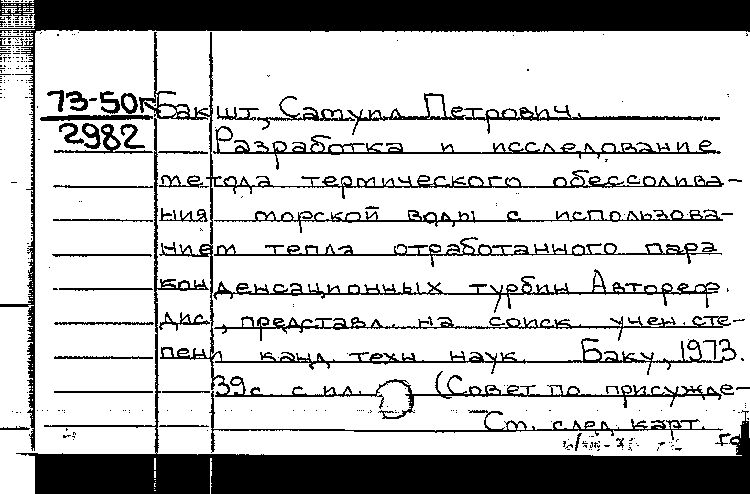 73-50 Бакшт, Самуил Петрович.
2982 Разработка и исследование
метода термического обессолива-
ния морской воды с использова-
нием тепла отработанного пара
конденсационных турбин Автореф.
дис., представл. на соиск. учен. сте-
пени канд. техн. наук. Баку, 1973.
39 с. с ил. (Совет по присужде-
См. след. карт.